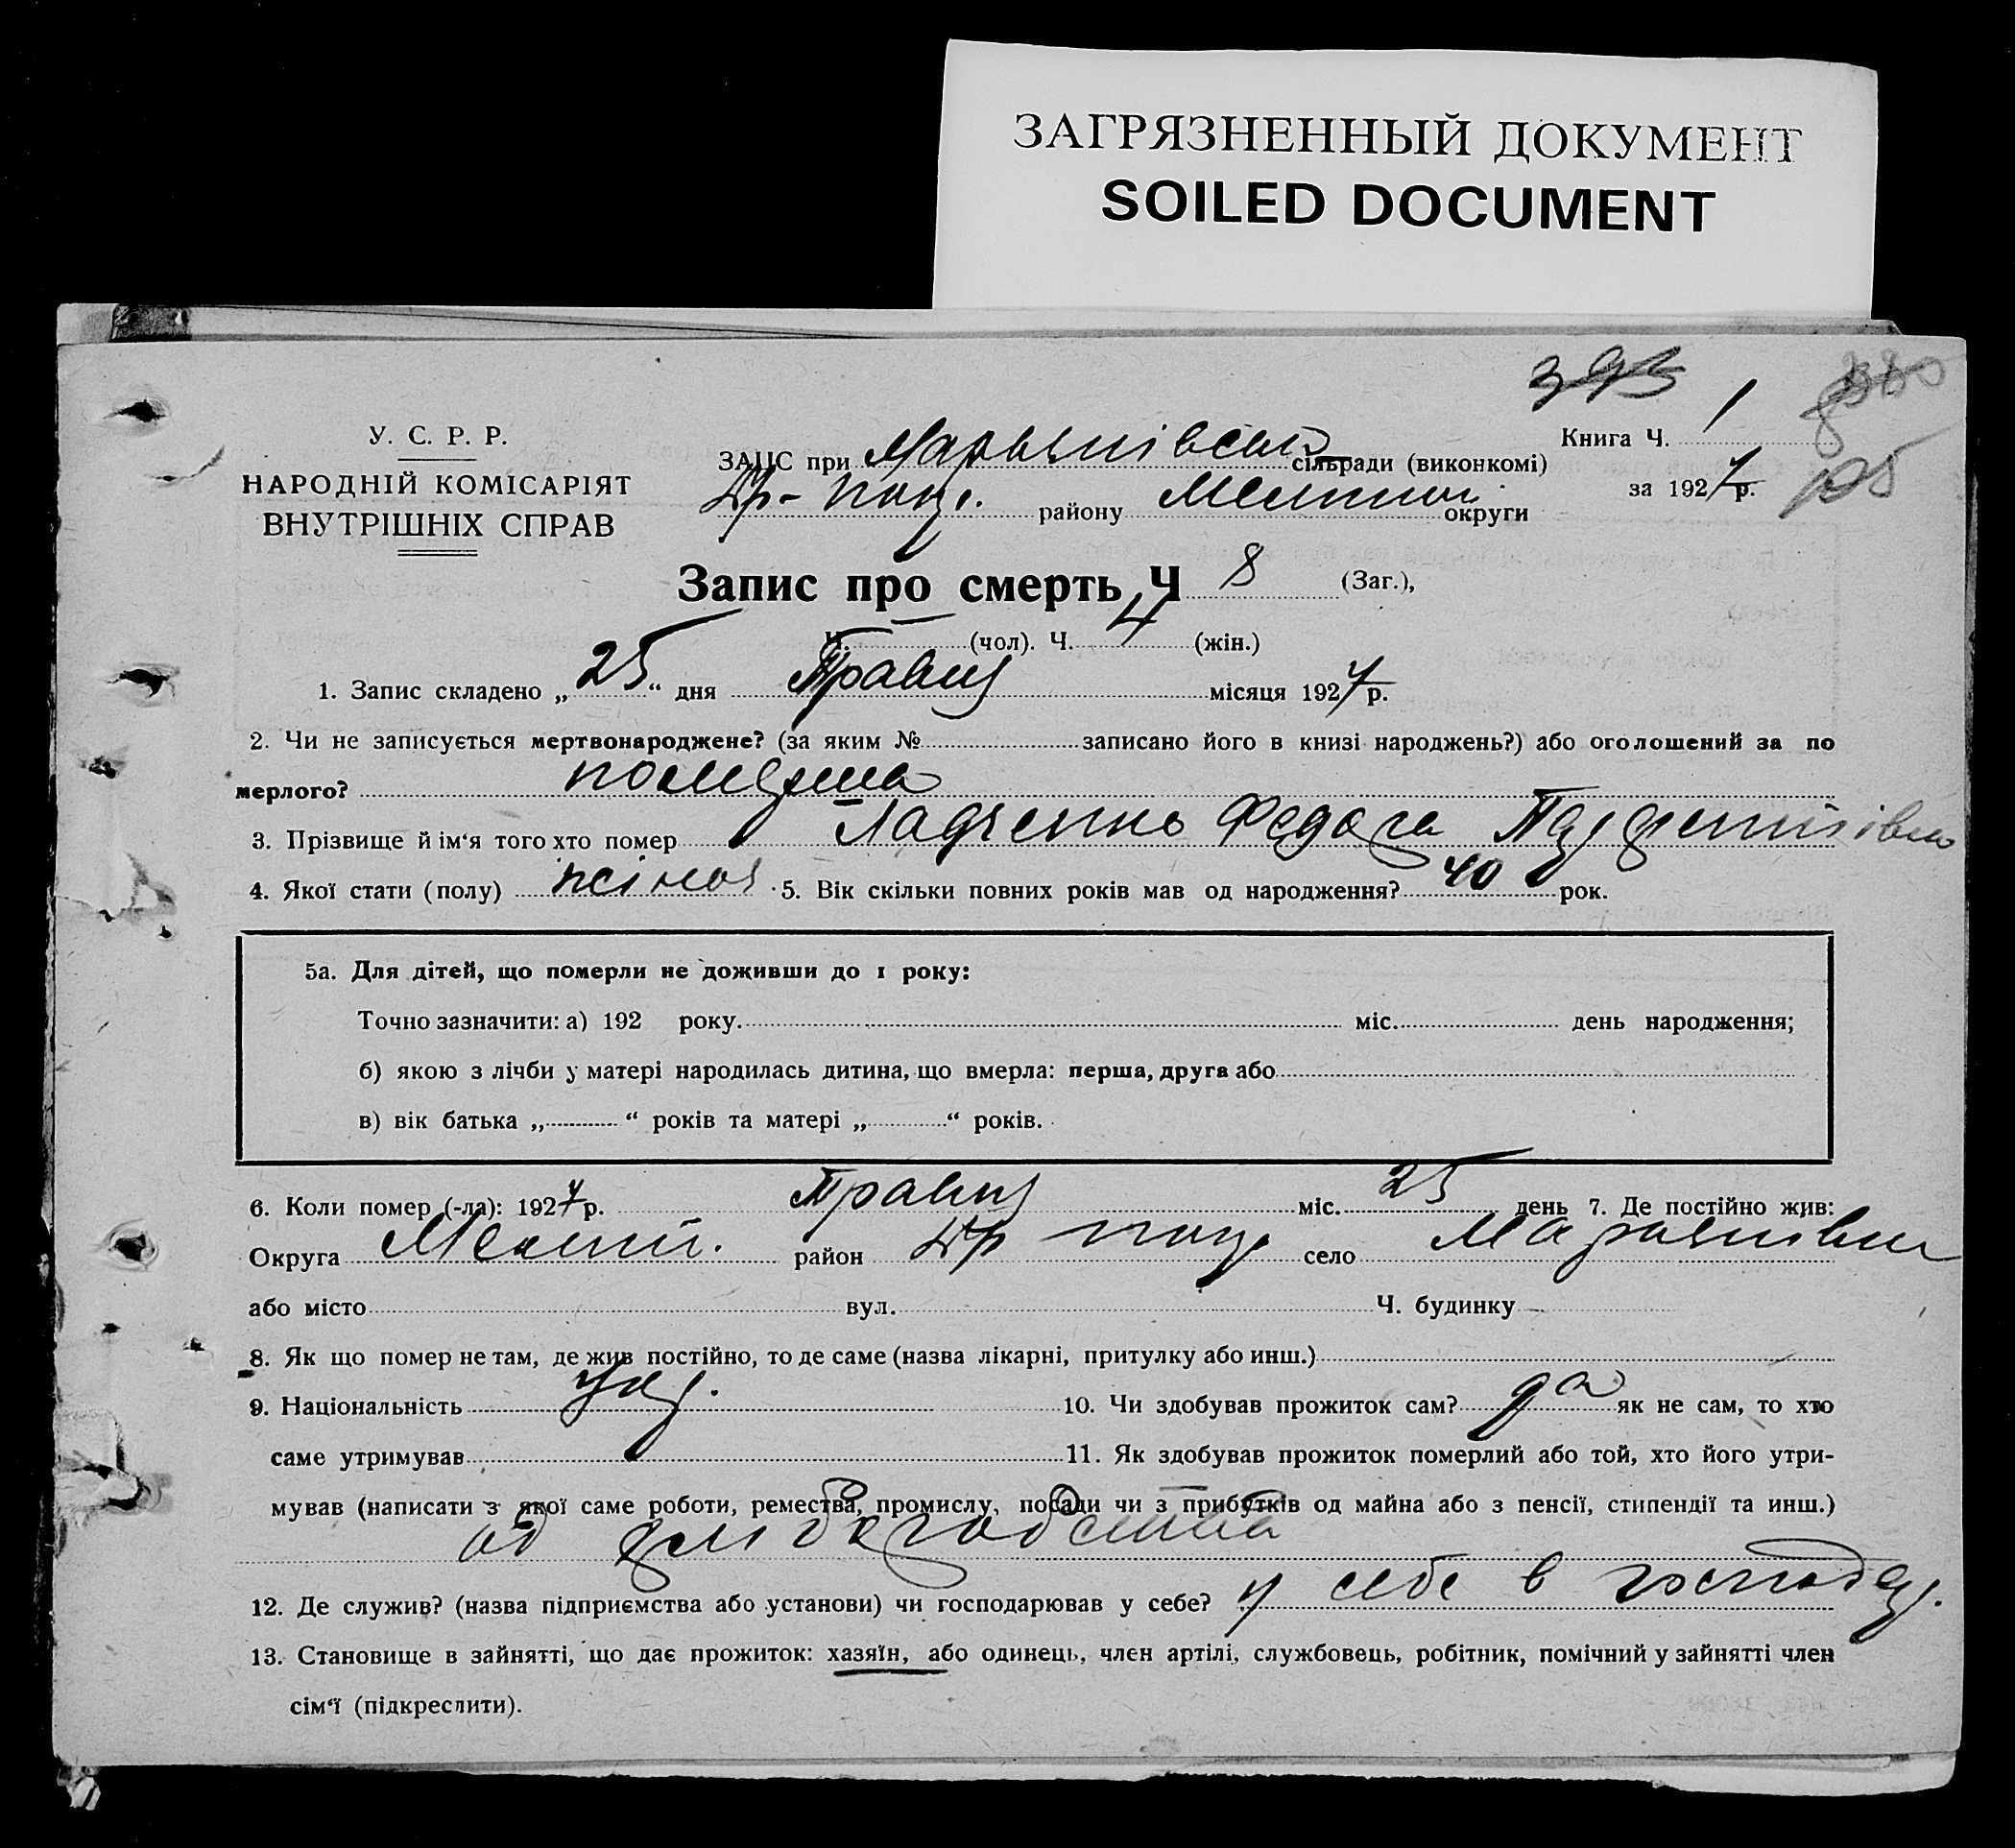 ЗАГРЯЗНЕННЫЙ ДОКУМЕНТ
SOILED DOCUMENT
393
У. С. Р. Р.
НАРОДНІЙ КОМІСАРІЯТ
ВНУТРІШНІХ СПРАВ
Книга Ч. 1
за 1927 р.
105
ЗАЦС при Мар'янівськ сільради (виконкомі)
району Мелит. округи
Запис про смерть Ч 8 (Заг.),
Ч. — (чол). Ч. 4 (жін.)
1. Запис складено „ 25 “ дня Травня місяця 1927 р.
2. Чи не записується мертвонароджене? (за яким № записано його в книзі народжень?) або оголошений за по
мерлого? померша
3. Прізвище й ім'я того хто помер Ладченко
4. Якої стати (полу) жіноч 5. Вік скільки повних років мав од народження? 40 рок.
5а. Для дітей, що померли не доживши до 1 року:
Точно зазначити: а) 192 року. міс. день народження;
б) якою з лічби у матері народилась дитина, що вмерла: перша, друга або
в) вік батька „ “ років та матері „ “ років.
6. Коли помер (-ла): 1927 р. Травня міс. 25 день 7. Де постійно жив:
Округа Мелит. район село Мар'янівка
або місто вул. Ч. будинку
8. Як що помер не там, де жив постійно, то де саме (назва лікарні, притулку або инш.)
9. Національність укр. 10. Чи здобував прожиток сам? да як не сам, то хто
саме утримував 11. Як здобував прожиток померлий або той, хто його утри-
мував (написати з якої саме роботи, ремества, промислу, посади чи з прибутків од майна або з пенсії, стипендії та инш.)
од хліборобства
12. Де служив? (назва підприємства або установи) чи господарював у себе? у себе в господар.
13. Становище в зайнятті, що дає прожиток: хазяїн, або одинець, член артілі, службовець, робітник, помічний у зайнятті член
сім‘ї (підкреслити).